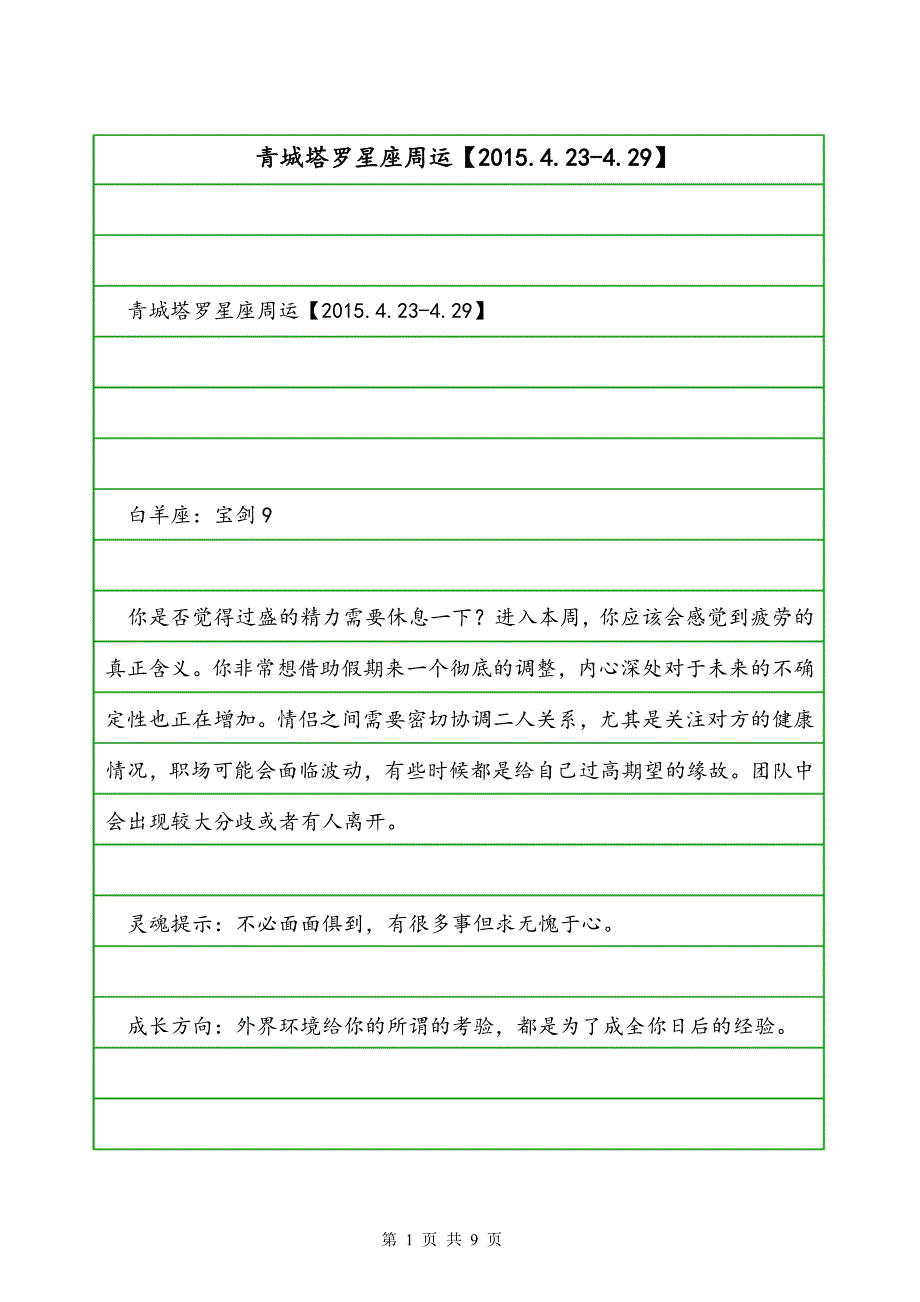 青城塔罗星座周运【2015.4.23-4.29】
青城塔罗星座周运【2015.4.23-4.29】
白羊座：宝剑9
你是否觉得过盛的精力需要休息一下？进入本周，你应该会感觉到疲劳的
真正含义。你非常想借助假期来一个彻底的调整，内心深处对于未来的不确
定性也正在增加。情侣之间需要密切协调二人关系，尤其是关注对方的健康
情况，职场可能会面临波动，有些时候都是给自己过高期望的缘故。团队中
会出现较大分歧或者有人离开。
灵魂提示：不必面面俱到，有很多事但求无愧于心。
成长方向：外界环境给你的所谓的考验，都是为了成全你日后的经验。
第 1 页 共 9 页